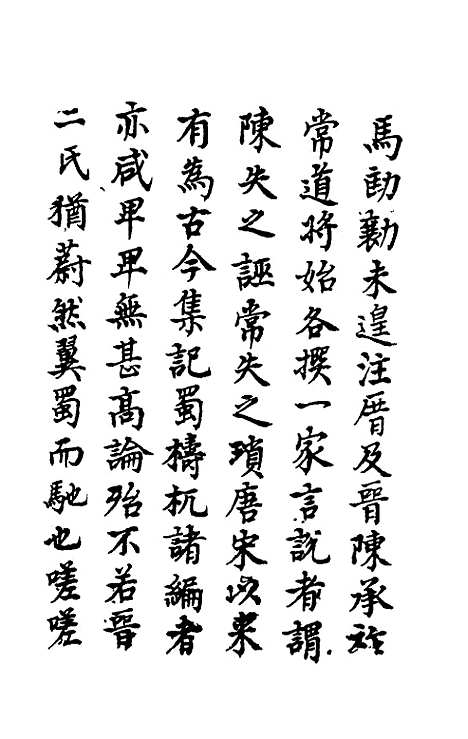 馬劻勷未遑注厝及晉陳承祚
常道將始各撰一家言說者謂
陳失之誣常失之瑣唐宋以來
有爲古今集記蜀檮杌諸編者
亦咸卑卑無甚高論殆不若晉
二氏猶蔚然翼蜀而馳也嗟嗟